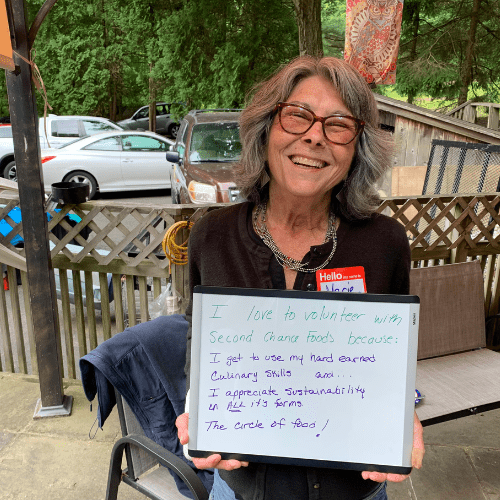 Hello my name is
I love to volunteer with
Second Chance Foods because:
I get to use my hard earned
Culinary Skills and...
I appreciate sustainability
in ALL it's forms.
The circle of food!